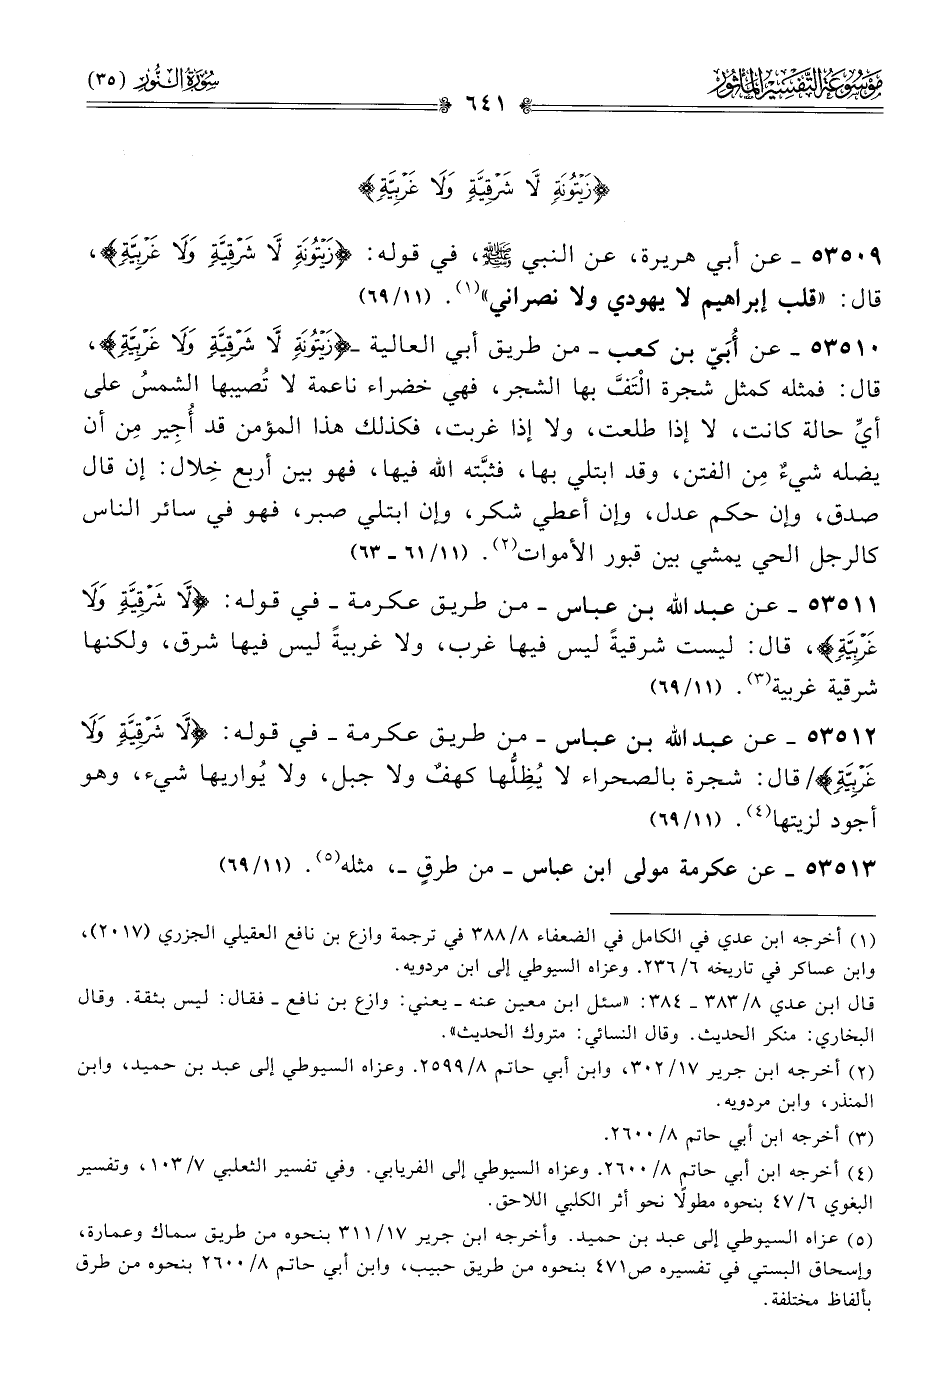 مَوْسُوعَة التَّفْسِيرِ المَأْثُور
سُورَةُ النُّور (٣٥)
٦٤١
﴿زَيْتُونَةٍ لَّا شَرْقِيَّةٍ وَلَا غَرْبِيَّةٍ﴾
٥٣٥٠٩ ـ عن أبي هريرة، عن النبي ﷺ، في قوله: ﴿زَيْتُونَةٍ لَّا شَرْقِيَّةٍ وَلَا غَرْبِيَّةٍ﴾،
قال: «قلب إبراهيم لا يهودي ولا نصراني»(١). (١١/٦٩)
٥٣٥١٠ ـ عن أُبَيّ بن كعب ـ من طريق أبي العالية ـ ﴿زَيْتُونَةٍ لَّا شَرْقِيَّةٍ وَلَا غَرْبِيَّةٍ﴾،
قال: فمثله كمثل شجرة الْتَفَّ بها الشجر، فهي خضراء ناعمة لا تُصيبها الشمسُ على
أيِّ حالة كانت، لا إذا طلعت، ولا إذا غربت، فكذلك هذا المؤمن قد أُجِير مِن أن
يضله شيءٌ مِن الفتن، وقد ابتلي بها، فثبَّته الله فيها، فهو بين أربع خِلال: إن قال
صدق، وإن حكم عدل، وإن أعطي شكر، وإن ابتلي صبر، فهو في سائر الناس
كالرجل الحي يمشي بين قبور الأموات(٢). (١١/٦١ ـ ٦٣)
٥٣٥١١ ـ عن عبد الله بن عباس ـ من طريق عكرمة ـ في قوله: ﴿لَّا شَرْقِيَّةٍ وَلَا
غَرْبِيَّةٍ﴾، قال: ليست شرقيةً ليس فيها غرب، ولا غربيةً ليس فيها شرق، ولكنها
شرقية غربية(٣). (١١/٦٩)
٥٣٥١٢ ـ عن عبد الله بن عباس ـ من طريق عكرمة ـ في قوله: ﴿لَّا شَرْقِيَّةٍ وَلَا
غَرْبِيَّةٍ﴾/ قال: شجرة بالصحراء لا يُظِلُّها كهفٌ ولا جبل، ولا يُواريها شيء، وهو
أجود لزيتها(٤). (١١/٦٩)
٥٣٥١٣ ـ عن عكرمة مولى ابن عباس ـ من طرقٍ ـ، مثله(٥). (١١/٦٩)
(١) أخرجه ابن عدي في الكامل في الضعفاء ٨/٣٨٨ في ترجمة وازع بن نافع العقيلي الجزري (٢٠١٧)،
وابن عساكر في تاريخه ٦/٢٣٦. وعزاه السيوطي إلى ابن مردويه.
قال ابن عدي ٨/٣٨٣ ـ ٣٨٤: «سئل ابن معين عنه ـ يعني: وازع بن نافع ـ فقال: ليس بثقة. وقال
البخاري: منكر الحديث. وقال النسائي: متروك الحديث».
(٢) أخرجه ابن جرير ١٧/٣٠٢، وابن أبي حاتم ٨/٢٥٩٩. وعزاه السيوطي إلى عبد بن حميد، وابن
المنذر، وابن مردويه.
(٣) أخرجه ابن أبي حاتم ٨/٢٦٠٠.
(٤) أخرجه ابن أبي حاتم ٨/٢٦٠٠. وعزاه السيوطي إلى الفريابي. وفي تفسير الثعلبي ٧/١٠٣، وتفسير
البغوي ٦/٤٧ بنحوه مطولًا نحو أثر الكلبي اللاحق.
(٥) عزاه السيوطي إلى عبد بن حميد. وأخرجه ابن جرير ١٧/٣١١ بنحوه من طريق سماك وعمارة،
وإسحاق البستي في تفسيره ص٤٧١ بنحوه من طريق حبيب، وابن أبي حاتم ٨/٢٦٠٠ بنحوه من طرق
بألفاظ مختلفة.